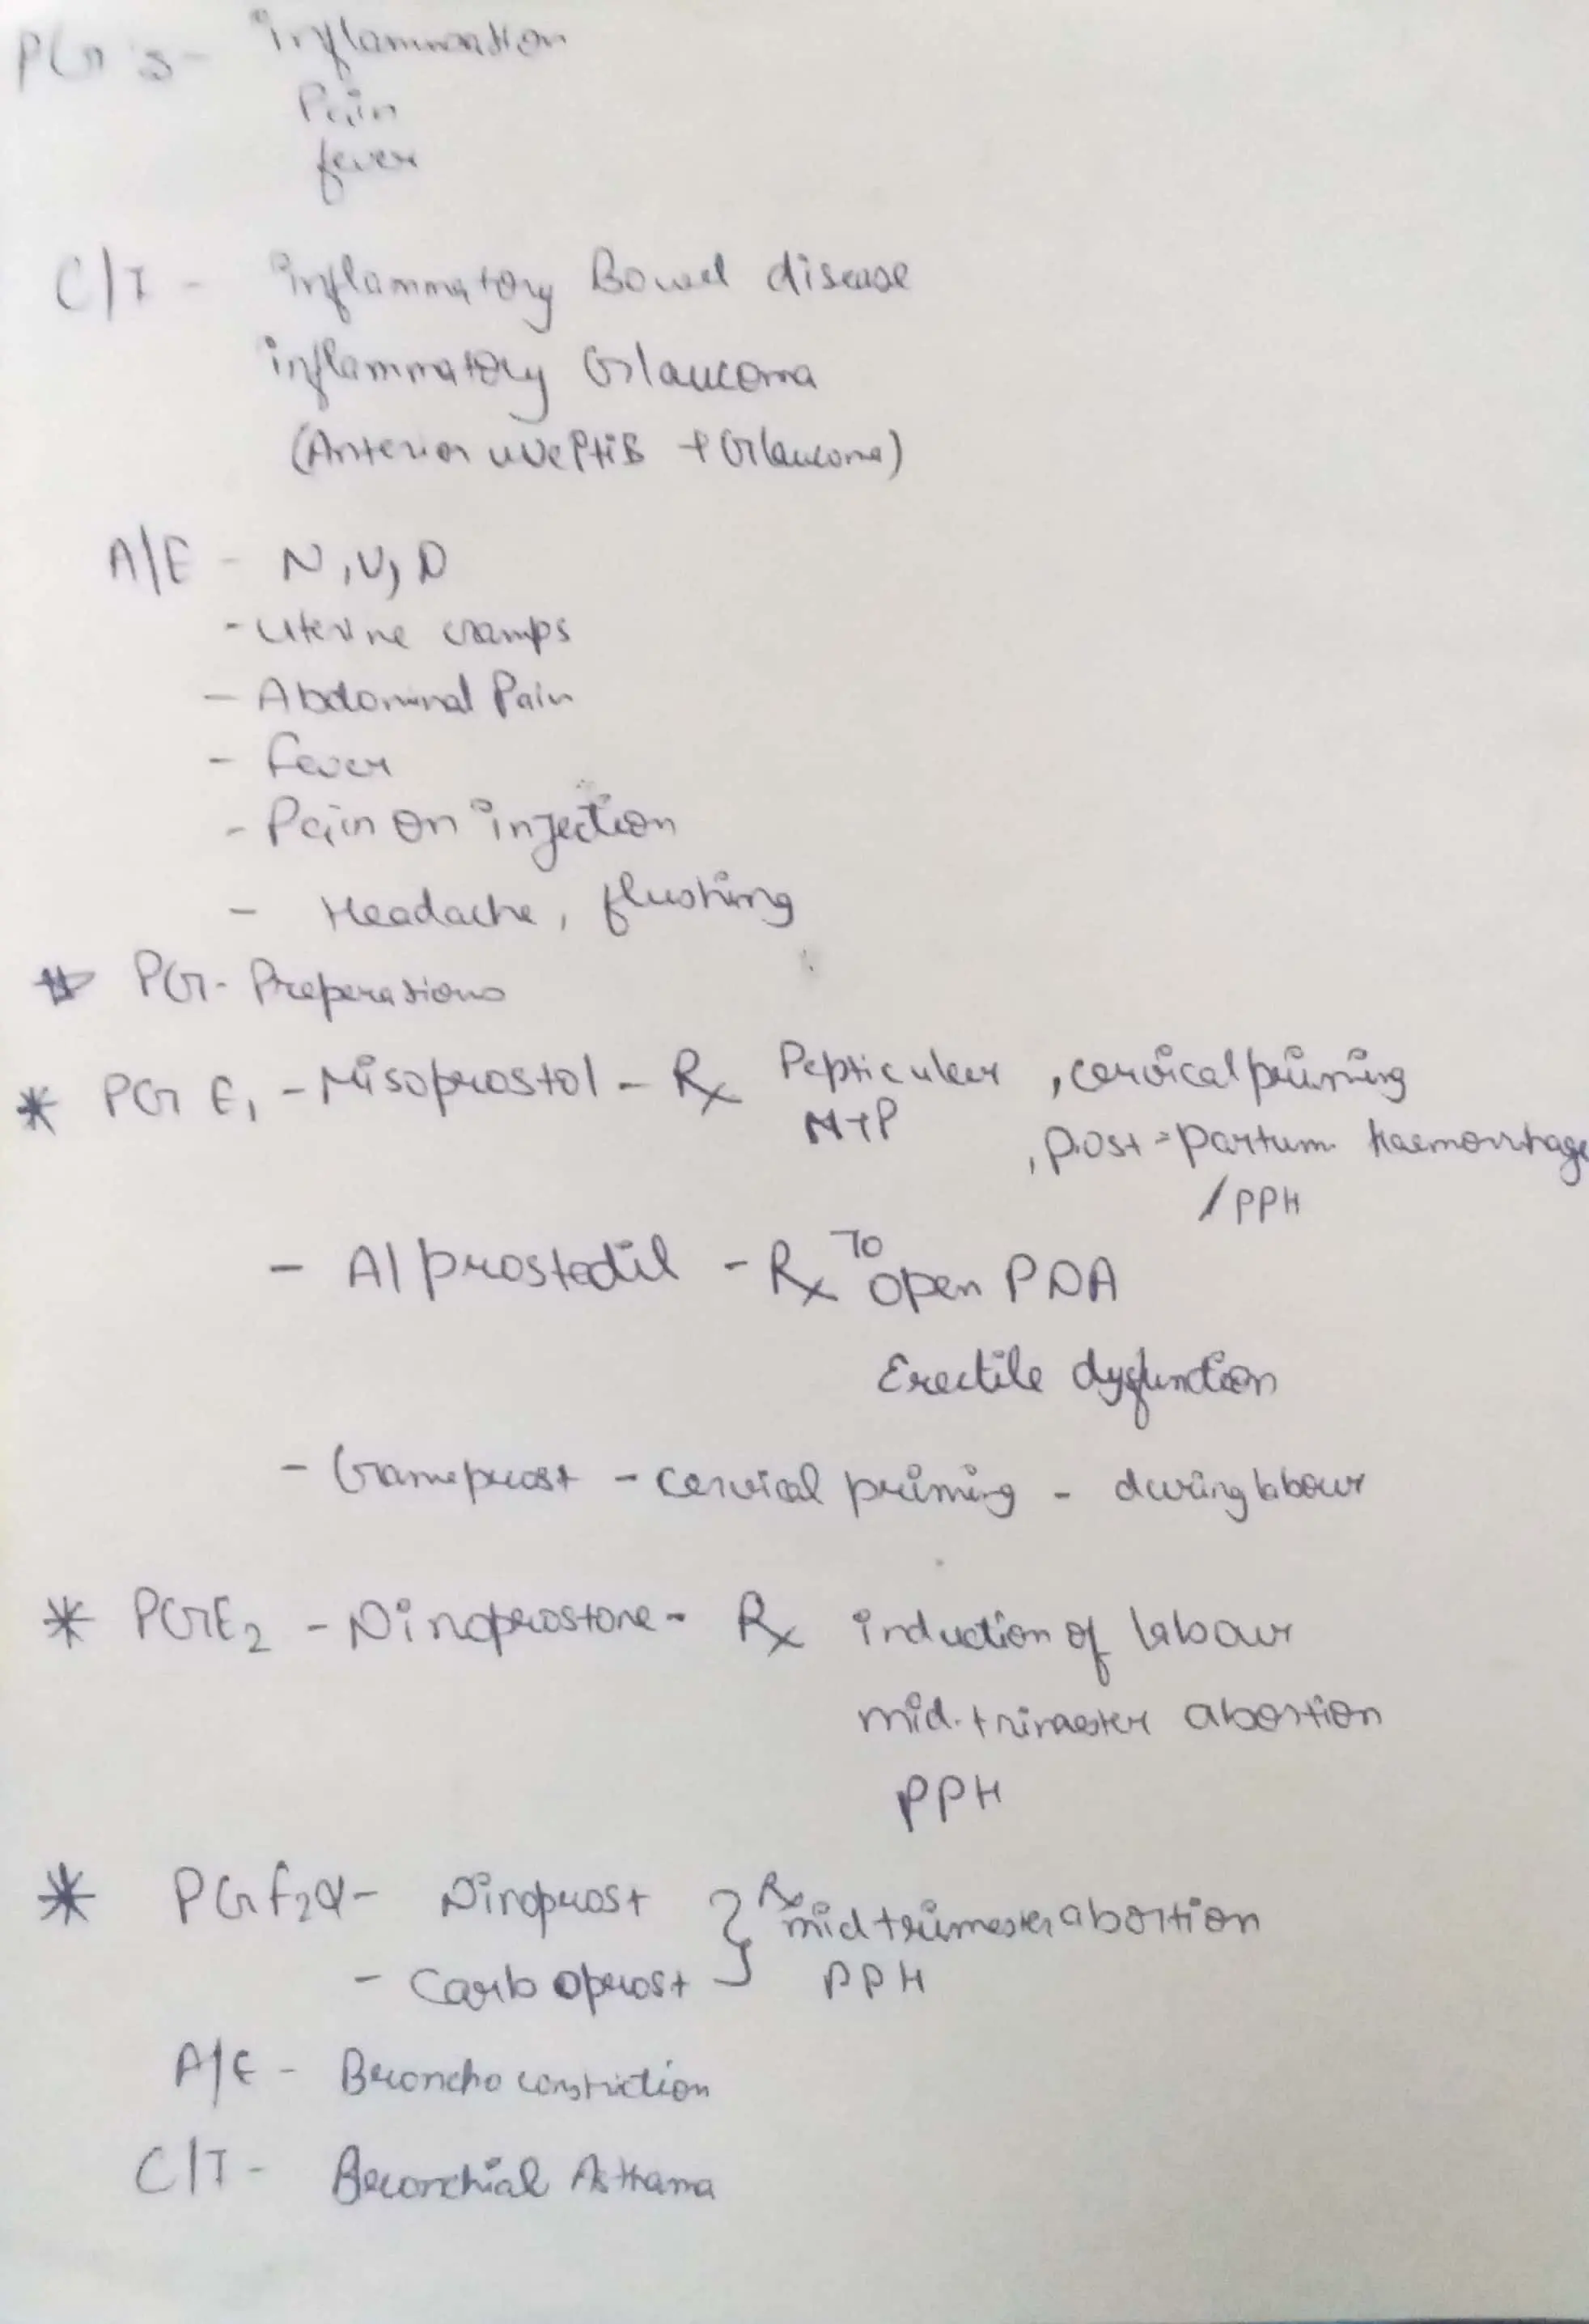 PG's - inflammation
Pain
fever
C/I - inflammatory Bowel disease
inflammatory Glaucoma
(Anterior uveitis + Glaucoma)
A/E - N, V, D
- Uterine cramps
- Abdominal Pain
- Fever
- Pain on injection
- Headache, flushing
PG - Preperations
* PG E₁ - Misoprostol - Rx Peptic ulcer, cervical priming
MTP, post-partum haemorrhage
/ PPH
- Alprostadil - Rx To open PDA
Erectile dysfunction
- Gameprost - cervical priming - during labour
* PGE₂ - Dinoprostone - Rx induction of labour
mid-trimester abortion
PPH
* PGF₂α - Dinoprost } Rx mid trimester abortion
- Carboprost PPH
A/E - Broncho constriction
C/I - Bronchial Asthama